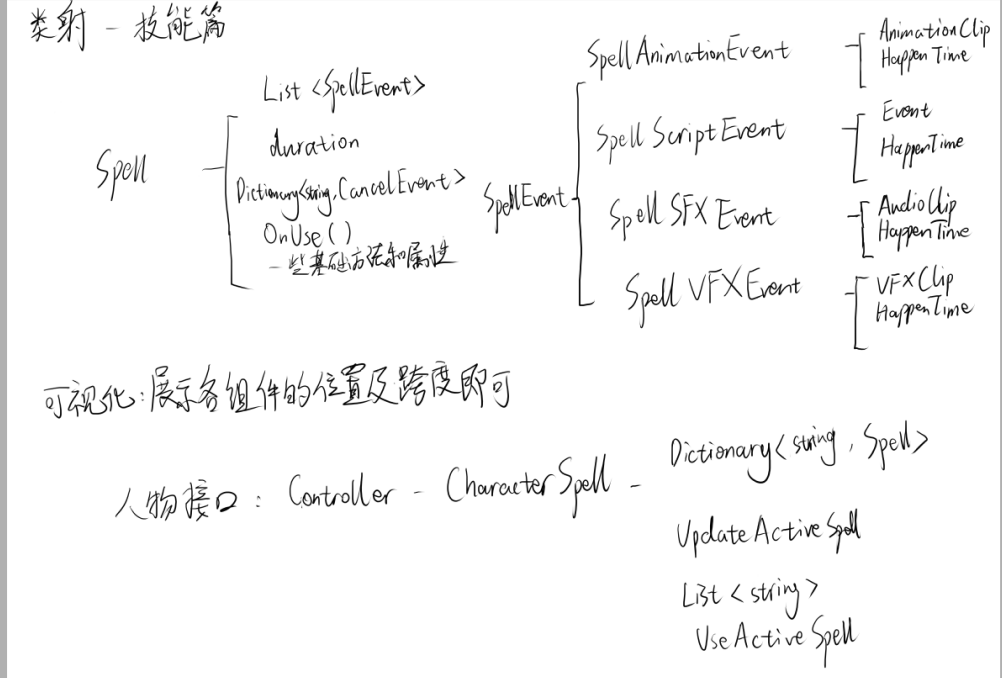 类射 - 技能篇
Spell
List <SpellEvent>
duration
Dictionary<string, CancelEvent>
OnUse()
一些基础方法和属性
SpellEvent
SpellAnimationEvent
AnimationClip
HappenTime
SpellScriptEvent
Event
HappenTime
SpellSFXEvent
AudioClip
HappenTime
SpellVFXEvent
VFXClip
HappenTime
可视化:展示各组件的位置及跨度即可
人物接口: Controller - CharacterSpell -
Dictionary<string, Spell>
UpdateActiveSpell
List <string>
UseActiveSpell